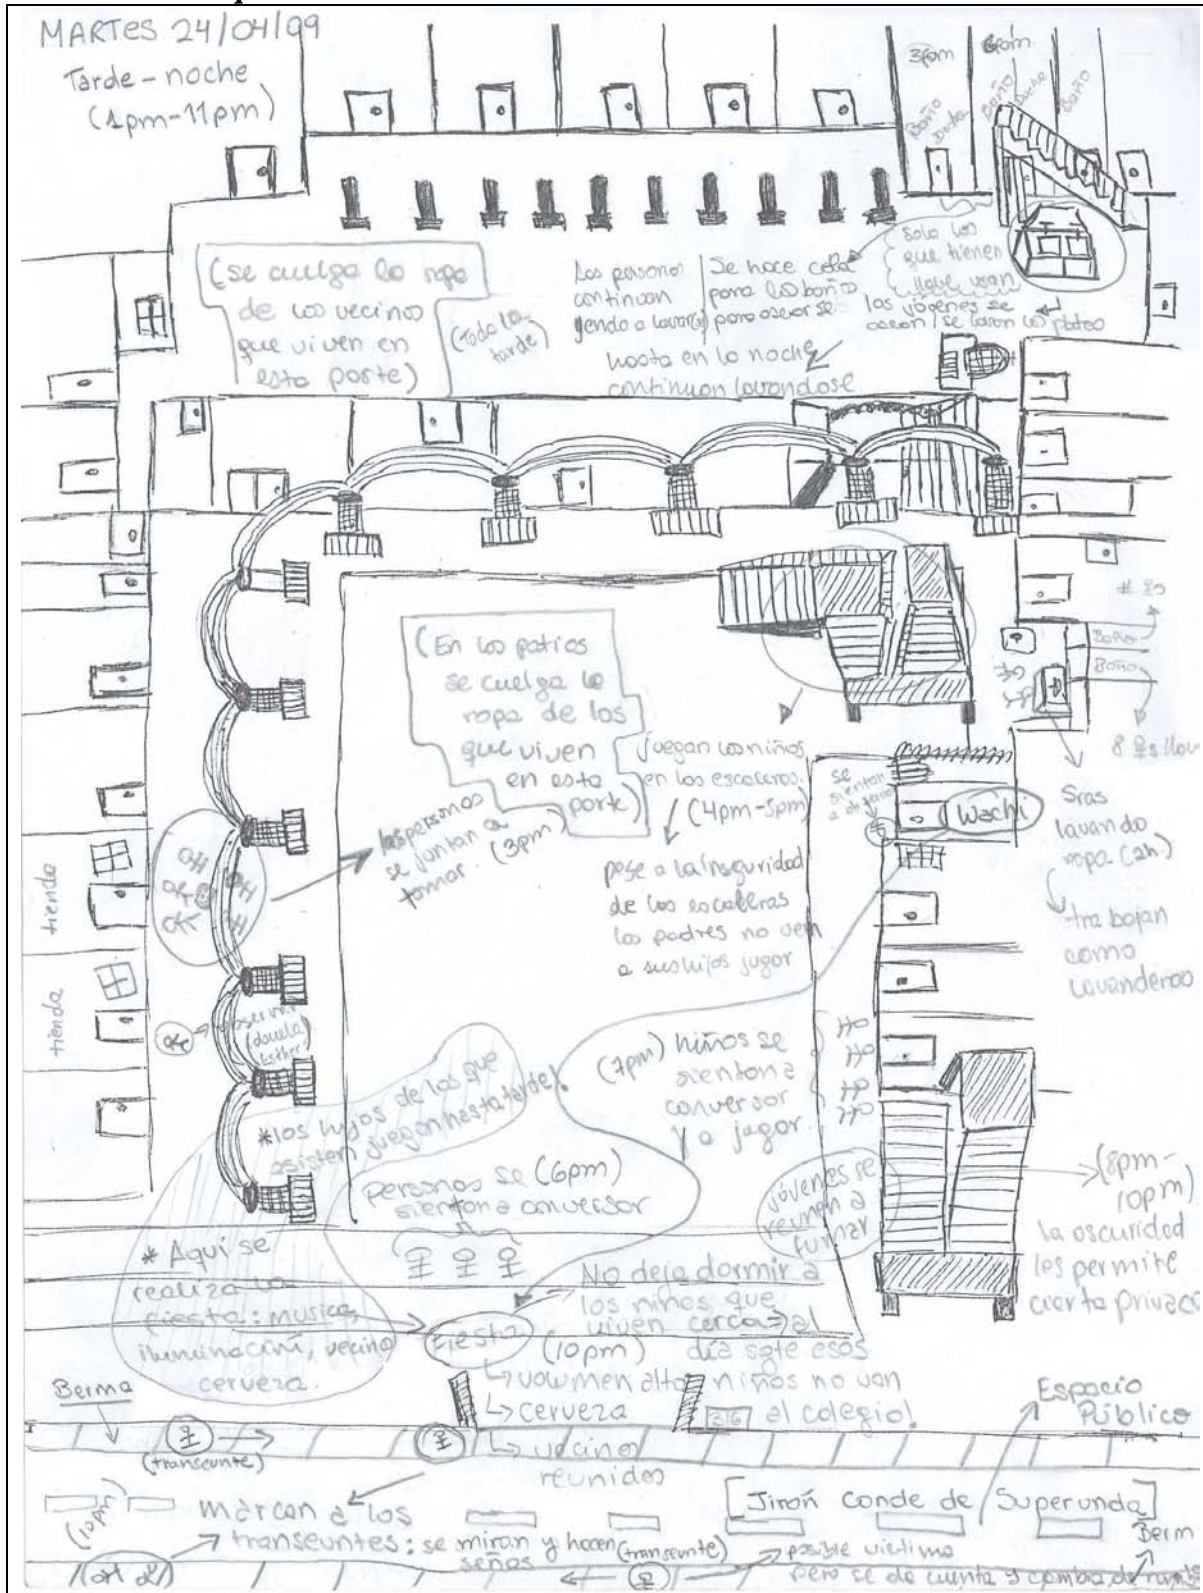 MARTES 24/04/99
Tarde-noche
(1pm-11pm)
3pom
Baño
Ducha
Baño
Ducha
Baño
(se cuelga la ropa
de los vecinos
que viven en
esta parte)
(Toda la
tarde)
Las personas
continuan
yendo a lavar
Se hace cola
para los baños
para asearse
solo los
que tienen
llave usan
los jóvenes se
asean/se lavan los platos
hasta en la noche
continuan lavandose
(En los patios
se cuelga la
ropa de los
que viven
en esta
parte)
las personas
se juntan a
tomar. (3pm)
juegan los niños
en las escaleras.
(4pm-5pm)
pese a la inseguridad
de las escaleras
los padres no ven
a sus hijos jugar
se
sientan
a observar
Wachi
Baño
Baño
Sras
lavando
ropa (2h)
trabajan
como
lavanderas
tienda
tienda
(7pm) niños se
sientan a
conversar
y a jugar.
*los hijos de los que
asisten juegan hasta tarde
personas se (6pm)
sientan a conversar
jóvenes se
reunen a
fumar
(8pm-
10pm)
la oscuridad
les permite
cierta
* Aqui se
realiza la
fiesta: musica,
iluminación, vecino
cerveza.
Fiesta
(10pm)
No deja dormir a
los niños que
viven cerca al
día sgte esos
niños no van
al colegio!
volumen alto
cerveza
vecinos
reunidos
316
Berma
(transeunte)
Espacio
Público
(10pm)
marcan a los
transeuntes: se miran y hacen
señas
[Jirón Conde de Superunda]
(transeunte)
posible victima
pero se da cuenta y cambia de
Berm